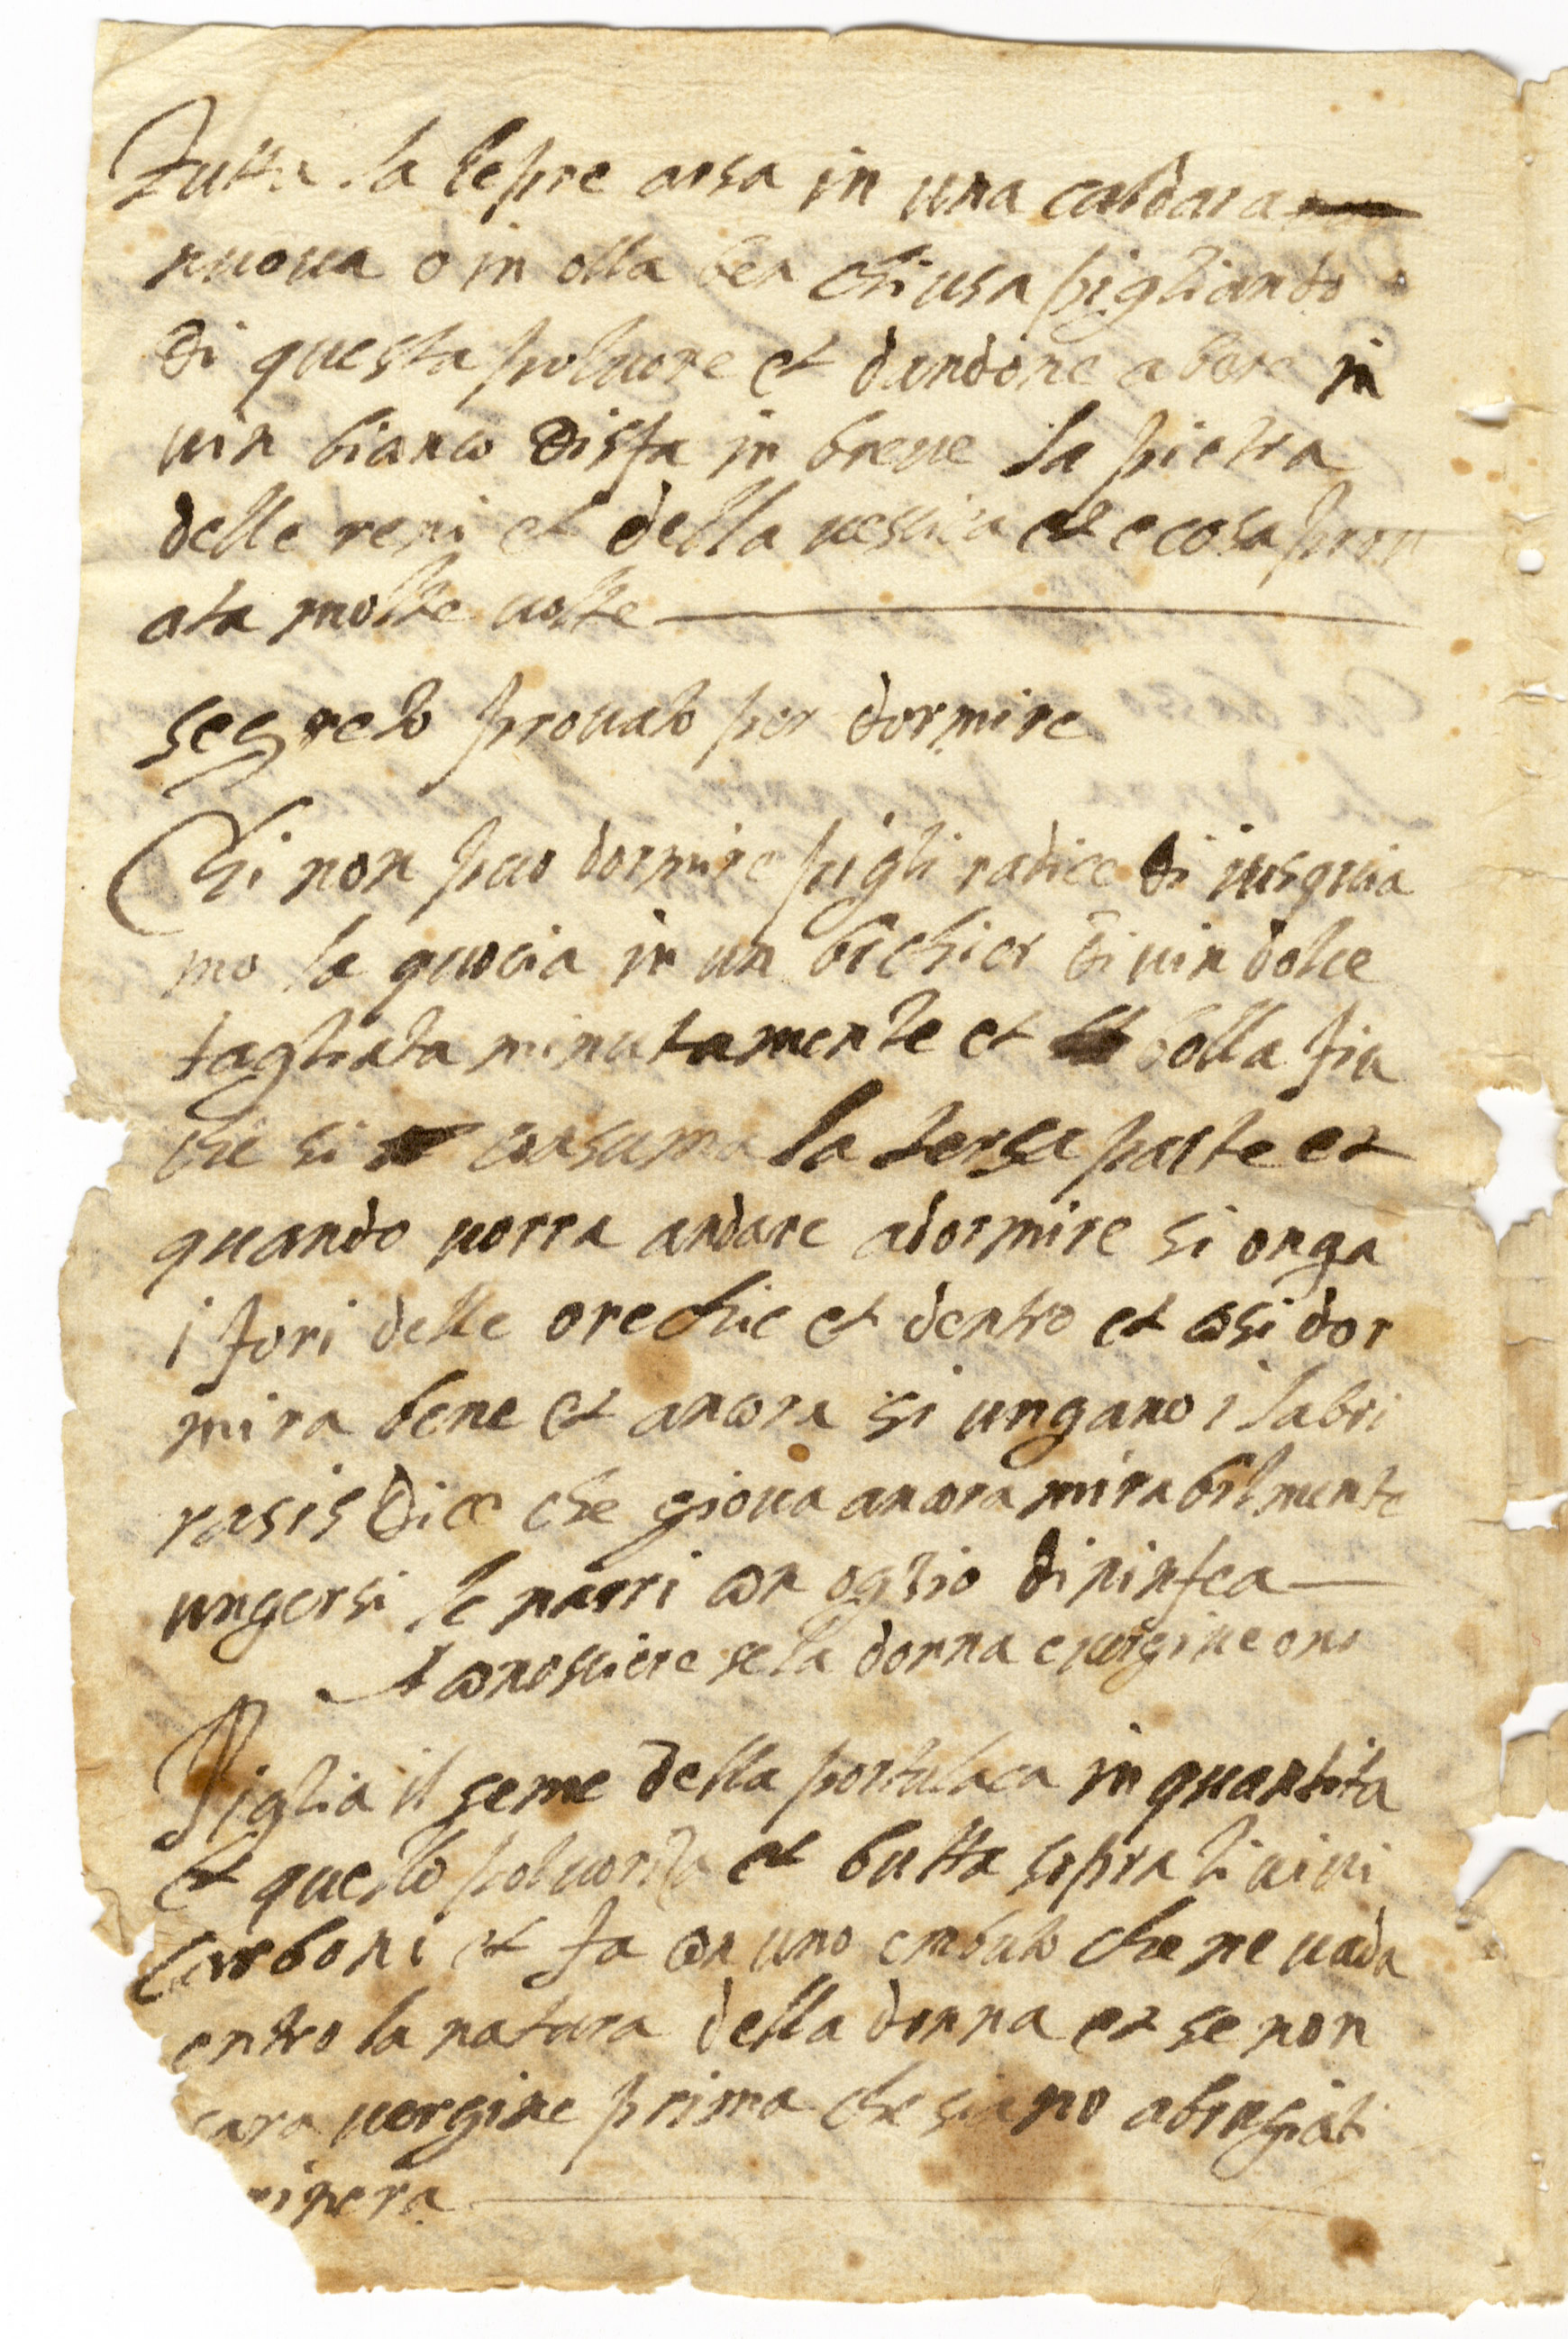 Tutta la lepre arsa in una caldara
nuoua o in olla ben chiusa pigliando
di questa poluore et dandone a bere in
uin bianco disfa in breue la pietra
delle reni et della uessica et e cosa prou
ata molte uolte
segreto prouato per dormire
Chi non puo dormire pigli radice di iusquia
mo la quocia in un bichier di uin dolce
tagliata minutamente et bolla fin
che si consuma la tersa parte et
quando uorra andare a dormire si onga
i fori delle orechie et dentro et cosi dor
mira bene et ancora si ungano i labri
rasis dice che gioua ancora mirabilmente
ungersi le narri con oglio di ninfea
A conosciere se la donna e uirgine o no
Piglia il seme della portulaca in quantita
et questo poluoriza et butta sopra li uiui
carboni et fa con uno embuto che ne uada
entro la natura della donna et se non
sara uergine prima che siano abrugiati